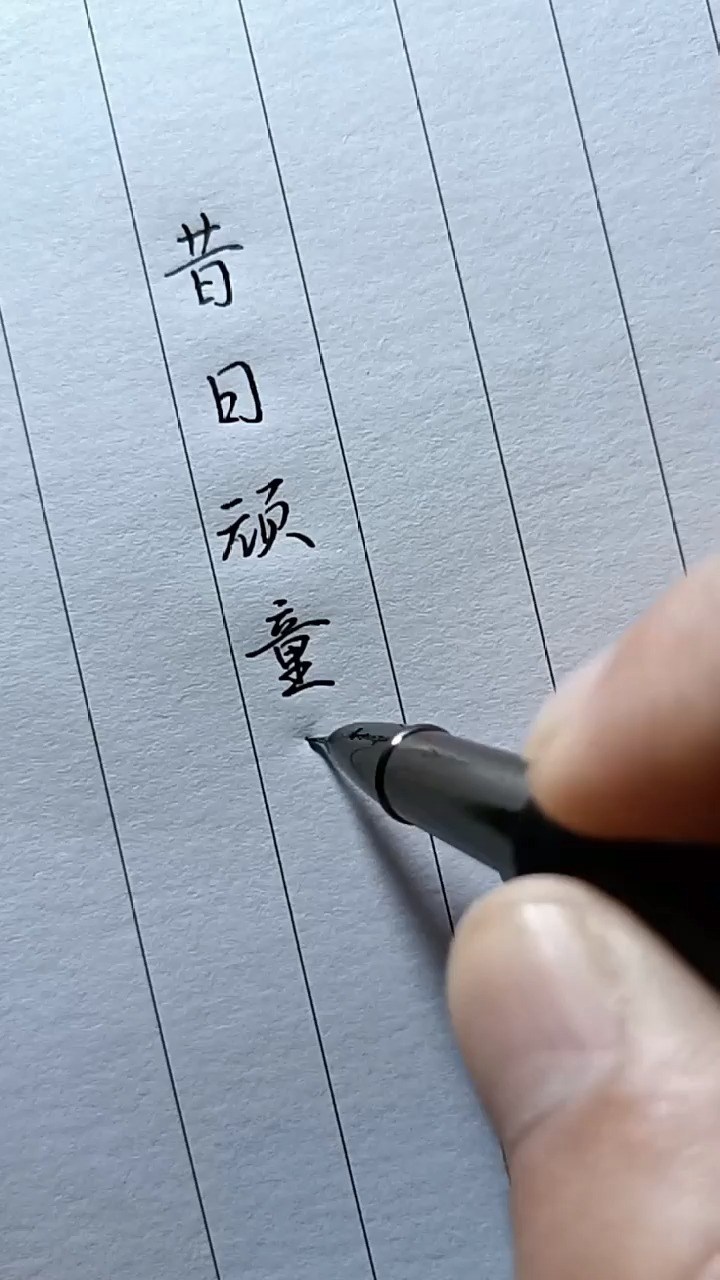 昔日顽童